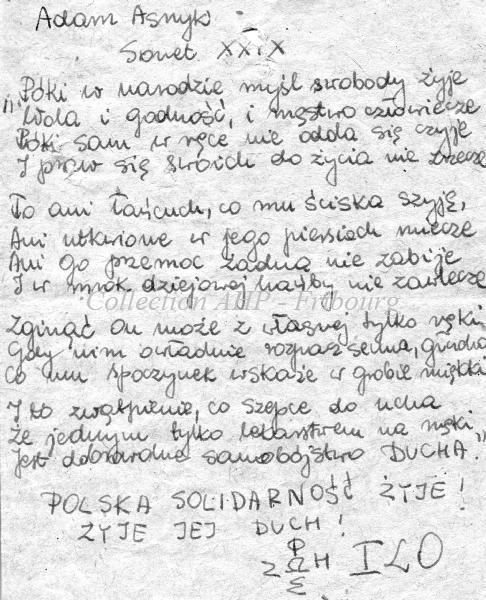 Adam Asnyk
Sonet XXIX
„Póki w narodzie myśl swobody żyje
Wola i godność, i męstwo człowiecze
Póki sam w ręce nie odda się czyje
I praw się swoich do życia nie zrzecze
To ani łańcuch, co mu ściska szyję,
Ani utkwione w jego piersiach miecze
Ani go przemoc żadna nie zabije
I w mrok dziejowej hańby nie zawlecze
Collection AHP - Fribourg
Zginąć on może z własnej tylko ręki
Gdy nim owładnie rozpacz senna, głucha
Co mu spoczynek wskaże w grobie miękki
I to zwątpienie, co szepce do ucha
Że jednym tylko lekarstwem na męki
Jest dobrowolne samobójstwo DUCHA."
POLSKA SOLIDARNOŚĆ ŻYJE!
ŻYJE JEJ DUCH!
ILO